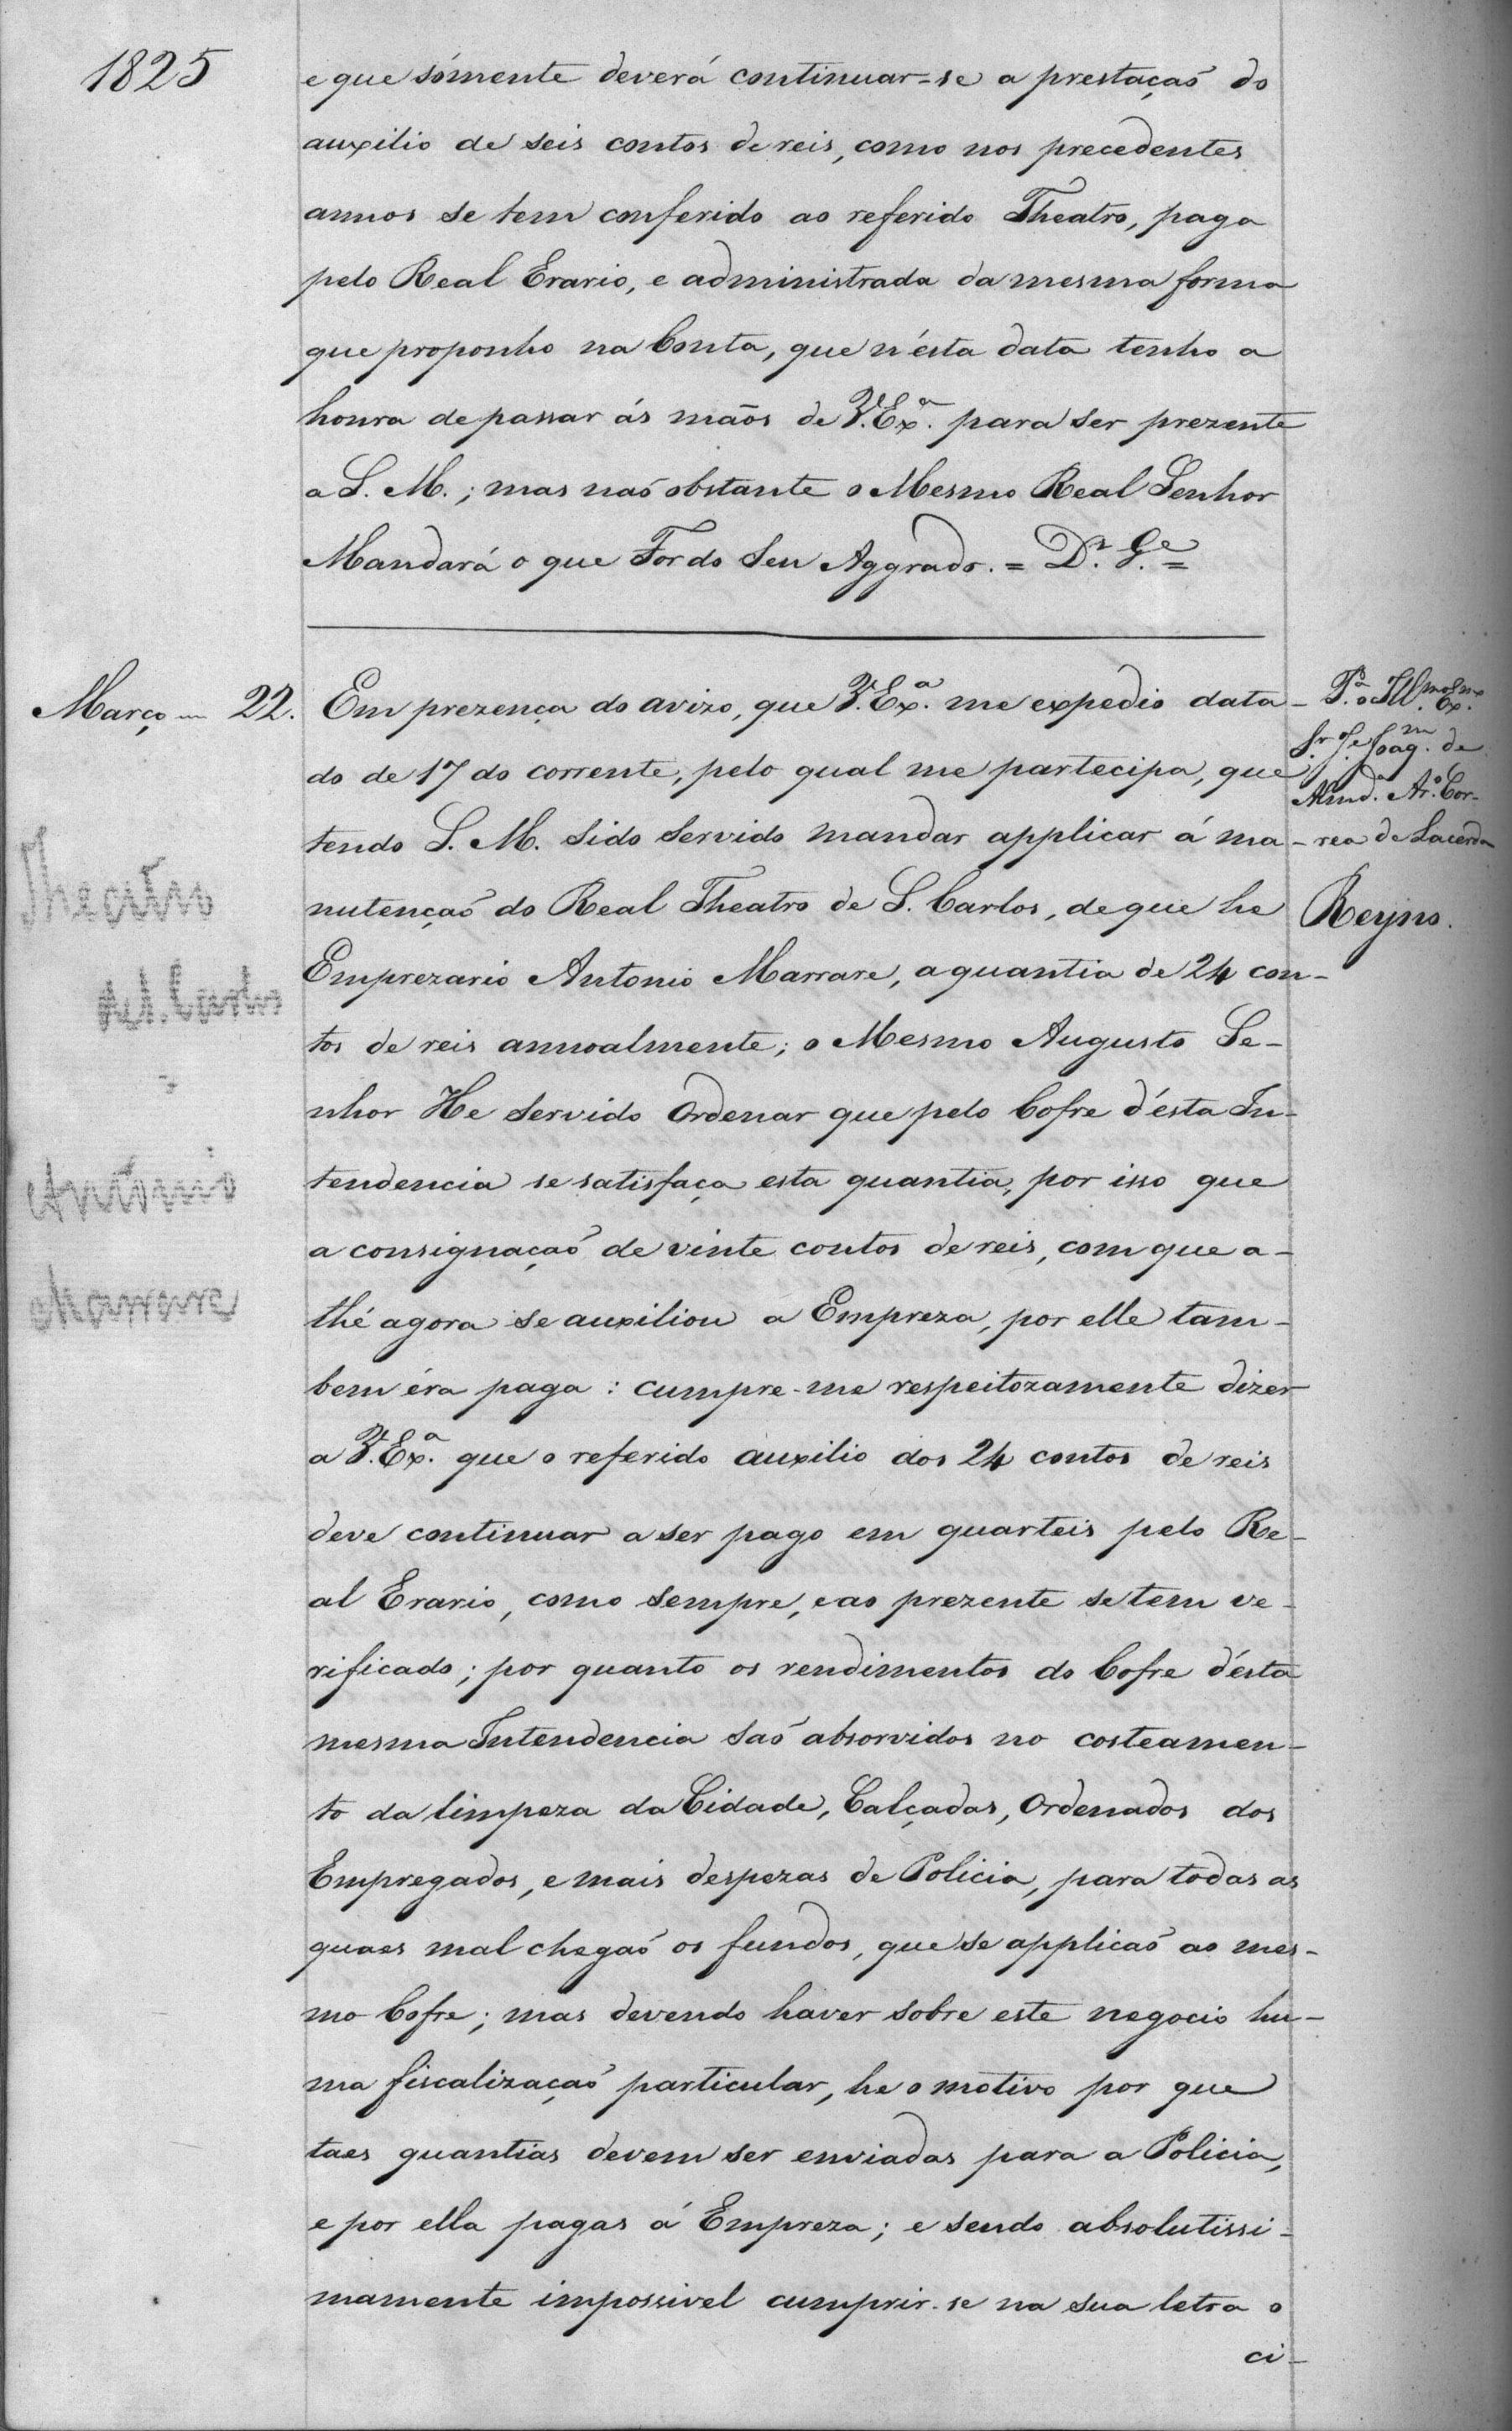 1825
e que sómente deverá continuar-se a prestaçaõ do
auxilio de seis contos de reis, como nos precedentes
annos se tem conferido ao referido Theatro, paga
pelo Real Erario, e administrada da mesma forma
que proponho na Conta, que n'ésta data tenho a
honra de passar ás mãos de V. Exª. para ser prezente
a S. M.; mas naõ obstante o Mesmo Real Senhor
Mandará o que For do Seu Aggrado. = Dˢ. Gᵉ. =
Março = 22.
Em prezença do avizo, que V. Exª. me expedio data-
do de 17 do corrente, pelo qual me partecipa, que
tendo S. M. sido servido mandar applicar á ma-
nutençaõ do Real Theatro de S. Carlos, de que he
Emprezario Antonio Marrare, a quantia de 24 con-
tos de reis annoalmente; o Mesmo Augusto Se-
nhor He servido Ordenar que pelo Cofre d'ésta In-
tendencia se satisfaça esta quantia, por isso que
a consignaçaõ de vinte contos de reis, com que a-
thé agora se auxiliou a Empreza, por elle tam-
bem éra paga: cumpre-me respeitozamente dizer
a V. Exª. que o referido auxilio dos 24 contos de reis
deve continuar a ser pago em quarteis pelo Re-
al Erario, como sempre, e ao prezente se tem ve-
rificado; por quanto os rendimentos do Cofre d'ésta
mesma Intendencia saõ absorvidos no costeamen-
to da limpeza da Cidade, Calçadas, Ordenados dos
Empregados, e mais despezas de Policia, para todas as
quaes mal chegaõ os fundos, que se applicaõ ao mes-
mo Cofre; mas devendo haver sobre este negocio hu-
ma fiscalizaçaõ particular, he o motivo por que
taes quantias devem ser enviadas para a Policia,
e por ella pagas á Empreza; e sendo absolutissi-
mamente impossivel cumprir-se na sua letra o
ci-
Pª. o Illᵐᵒ Exᵐᵒ
Sʳ. Jᵉ Joaqᵐ. de
Almdª. Arº. Cor-
rea de Lacerda
Reyno.
Theatro
de S. Carlos
=
Antonio
Marrare